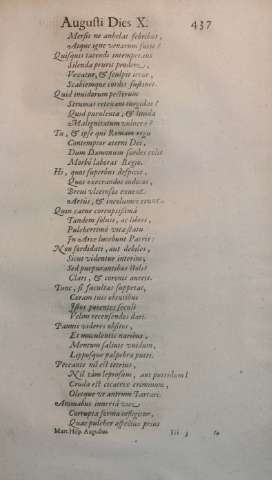 Augusti Dies X. 437
Mersis ne anhelat febribus,
Atque igne venarum furit?
Quisquis tacendi intemperans
Silenda prurit prodere,
Vexatur, & scalpit
Scabiemque cordis sustinet.
Quid invidorum pectorum
Strumas retexam turgidas?
Quid purulenta, & livida
Malignitatum vulnera?
Tu, & ipse qui Romam regis
Contemptor æterni Dei,
Dum Dæmonum sordes colis
Morbo laboras Regio.
Hi, quos superbus despicis,
Quos execrandos iudicas,
Brevi ulcerosos exuent
Artus, & incolumes erunt.
Quin carne corruptissima
Tandem soluti, ac liberi,
Pulcherrimo vitæ statu
In Arce lucebunt Patris:
Non sordidati, aut debiles,
Sicut videntur interim,
Sed purpurantibus stolis
Clari, & coronis aureis.
Tunc, si facultas suppetat,
Coram tuis obtutibus
Istos potentes sæculi
Velim recensendos dari.
Pannis videres obsitos,
Et muculentis naribus,
Mentum salivis uvidum,
Lippasque palpebra putri.
Peccante nil est tetrius,
Nil tam leprosum, aut putridum:
Cruda est cicatrix criminum,
Oletque ut antrum Tartari.
Animabus inversa vice
Corrupta forma infligitur,
Quas pulcher aspectus prius
Mart. Hisp. Augustus Iii 3